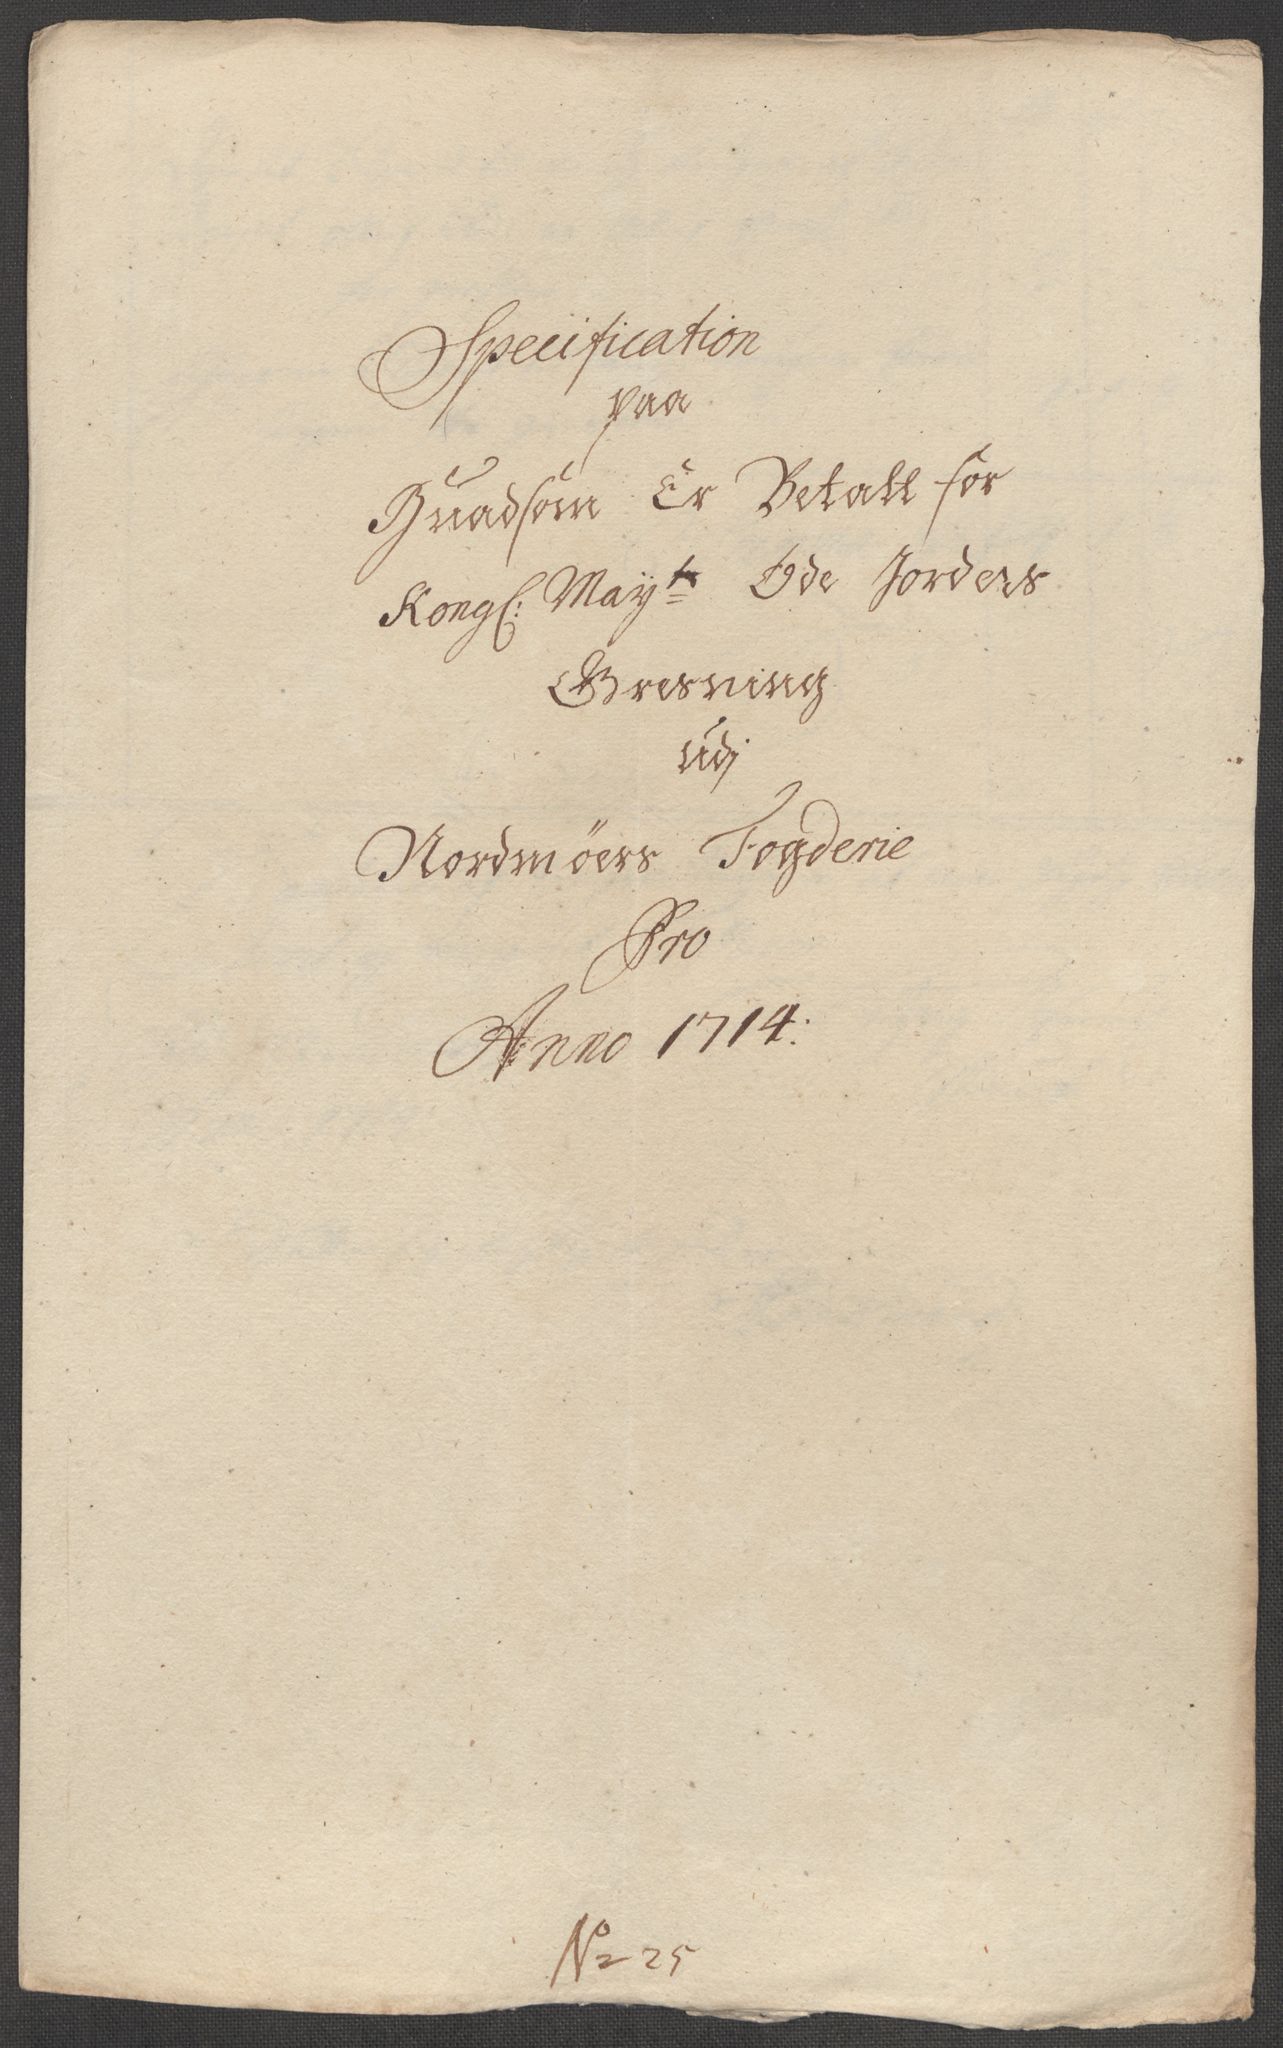 Specification
paa
Huadsom Er Betalt for
Kongl: May:ts Øde Jorders
Gresning
udj
Nordmöers Fogderie
Pro
Anno 1714:
No 25